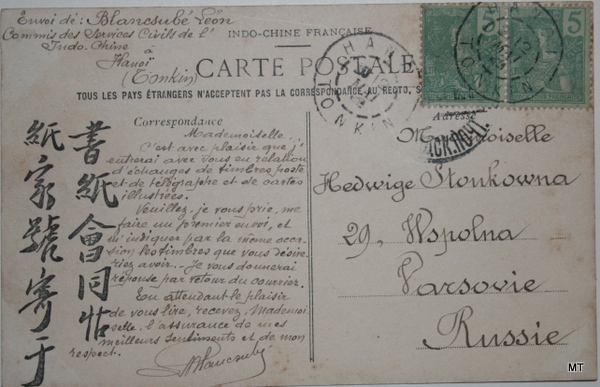 Envoi de : Blancsubé Léon
Commis des Services Civils de l'
Indo-Chine
à
Hanoï
(Tonkin)
INDO-CHINE FRANÇAISE
CARTE POSTALE
TOUS LES PAYS ÉTRANGERS N'ACCEPTENT PAS LA CORRESPONDANCE AU RECTO, S
5
5
HANOI
TONKIN
HANOI
TONKIN
Correspondance
Adresse
Mademoiselle.
C'est avec plaisir que j'
entrerai avec vous en relation
d'échanges de timbres poste
et de télégraphe et de cartes
illustrées.
Veuillez, je vous prie, me
faire un premier envoi, et
m'indiquer par la même occa-
sion les timbres que vous désire-
riez avoir. Je vous donnerai
réponse par retour du courrier.
En attendant le plaisir
de vous lire, recevez, Mademoi-
selle, l'assurance de mes
meilleurs sentiments et de mon
respect.
Blancsubé
書紙會同怗
紙家號寄于
Mademoiselle
Hedwige Stonkowna
29, Wspolna
Varsovie
Russie
MT